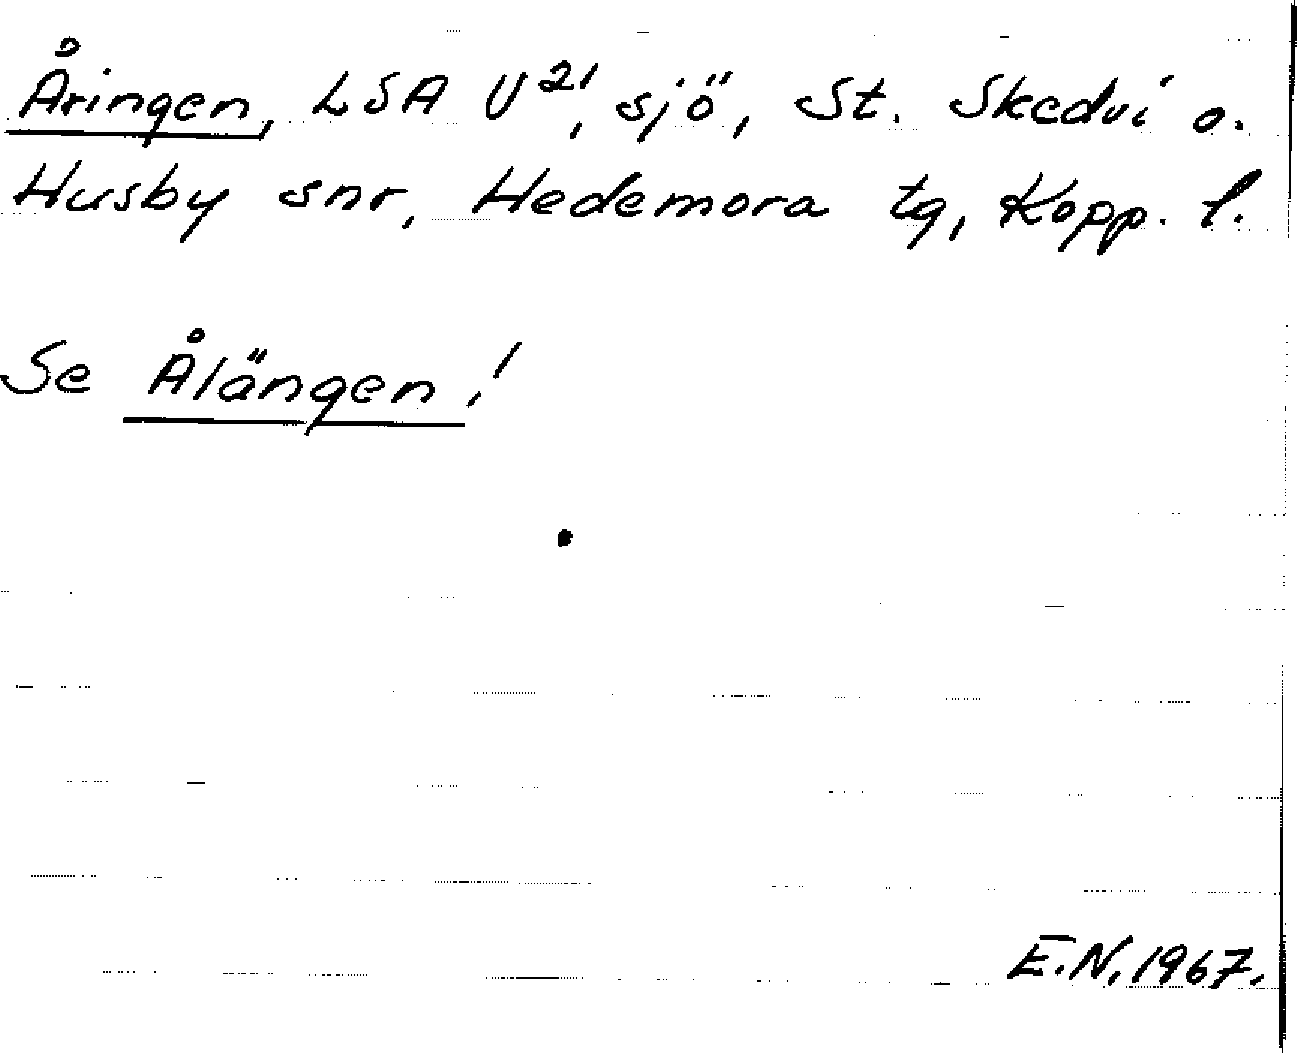 Åringen, LSA U²¹, sjö, St. Skedvi o.
Husby snr, Hedemora tg, Kopp. l.
Se Ålängen!
E.N. 1967.